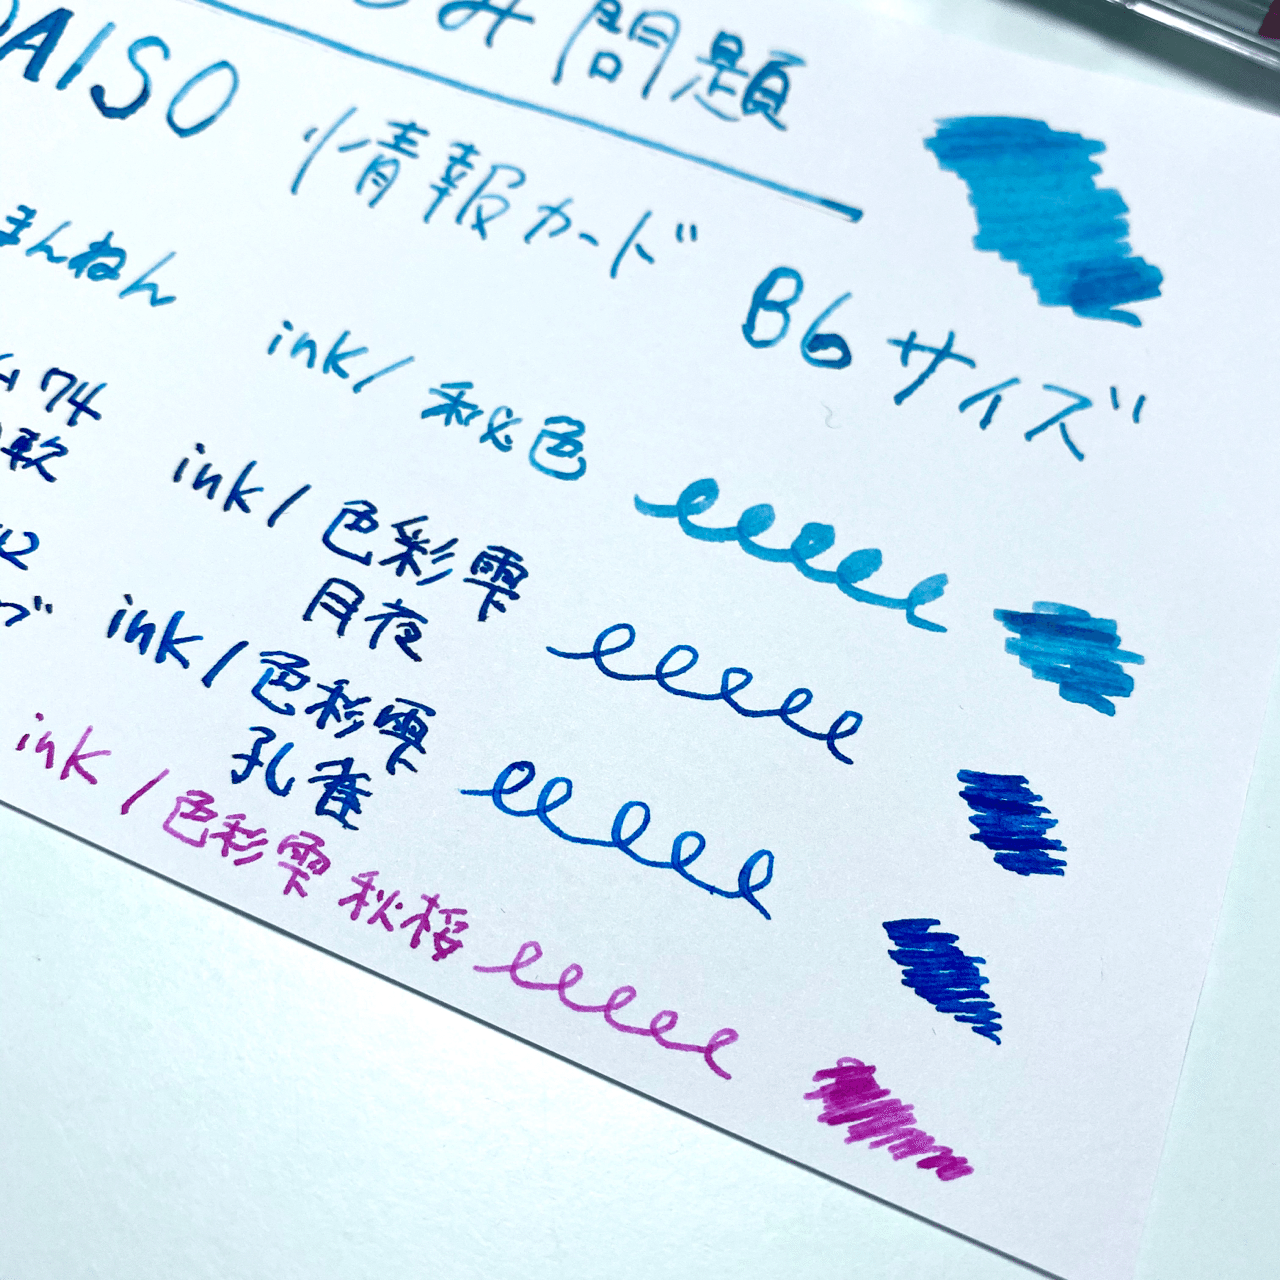 み問題
DAISO 情報カード B6サイズ
まんねん
ink/秘色
74
軟
ink/色彩雫
月夜
42
ink/色彩雫
孔雀
ink/色彩雫 秋桜